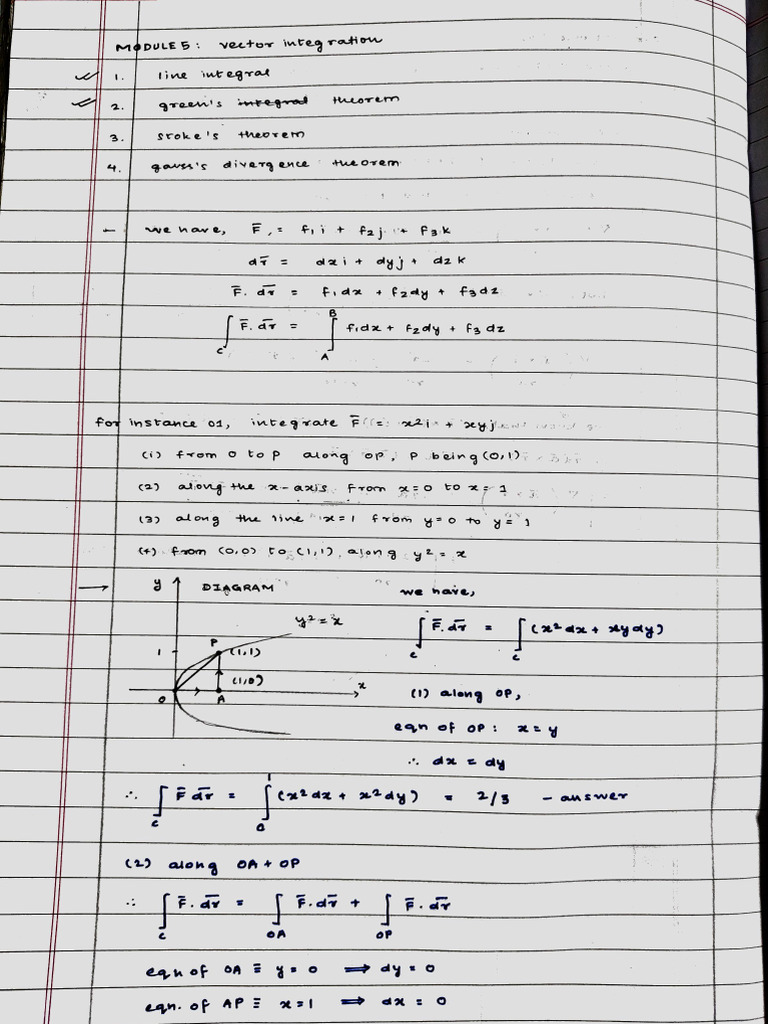 MODULE 5: vector integration
1. line integral
2. green's integral theorem
3. stoke's theorem
4. gauss's divergence theorem
- we have, F̄ = f₁i + f₂j + f₃k
dr̄ = dxi + dyj + dzk
F̄. dr̄ = f₁dx + f₂dy + f₃dz
∫c F̄. dr̄ = ∫AB f₁dx + f₂dy + f₃dz
for instance 01, integrate F̄ = x²i + xyj
(1) from O to P along OP, P being (0,1)
(2) along the x-axis from x=0 to x=1
(3) along the line x=1 from y=0 to y=1
(4) from (0,0) to (1,1) along y² = x
→ y DIAGRAM we have,
y² = x
∫c F̄. dr̄ = ∫c (x²dx + xydy)
P
1 (1,1)
(1,0)
O A x
(1) along OP,
eqn of OP: x = y
∴ dx = dy
∴ ∫c F̄ dr̄ = ∫01 (x²dx + x²dy) = 2/3 - answer
(2) along OA + OP
∴ ∫c F̄. dr̄ = ∫OA F̄. dr̄ + ∫OP F̄. dr̄
eqn of OA ≡ y = 0 ⟹ dy = 0
eqn. of AP ≡ x = 1 ⟹ dx = 0